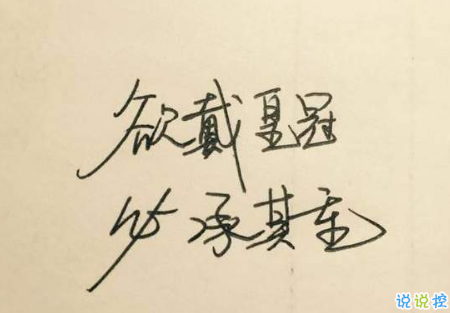 欲戴皇冠
必承其重
说说控